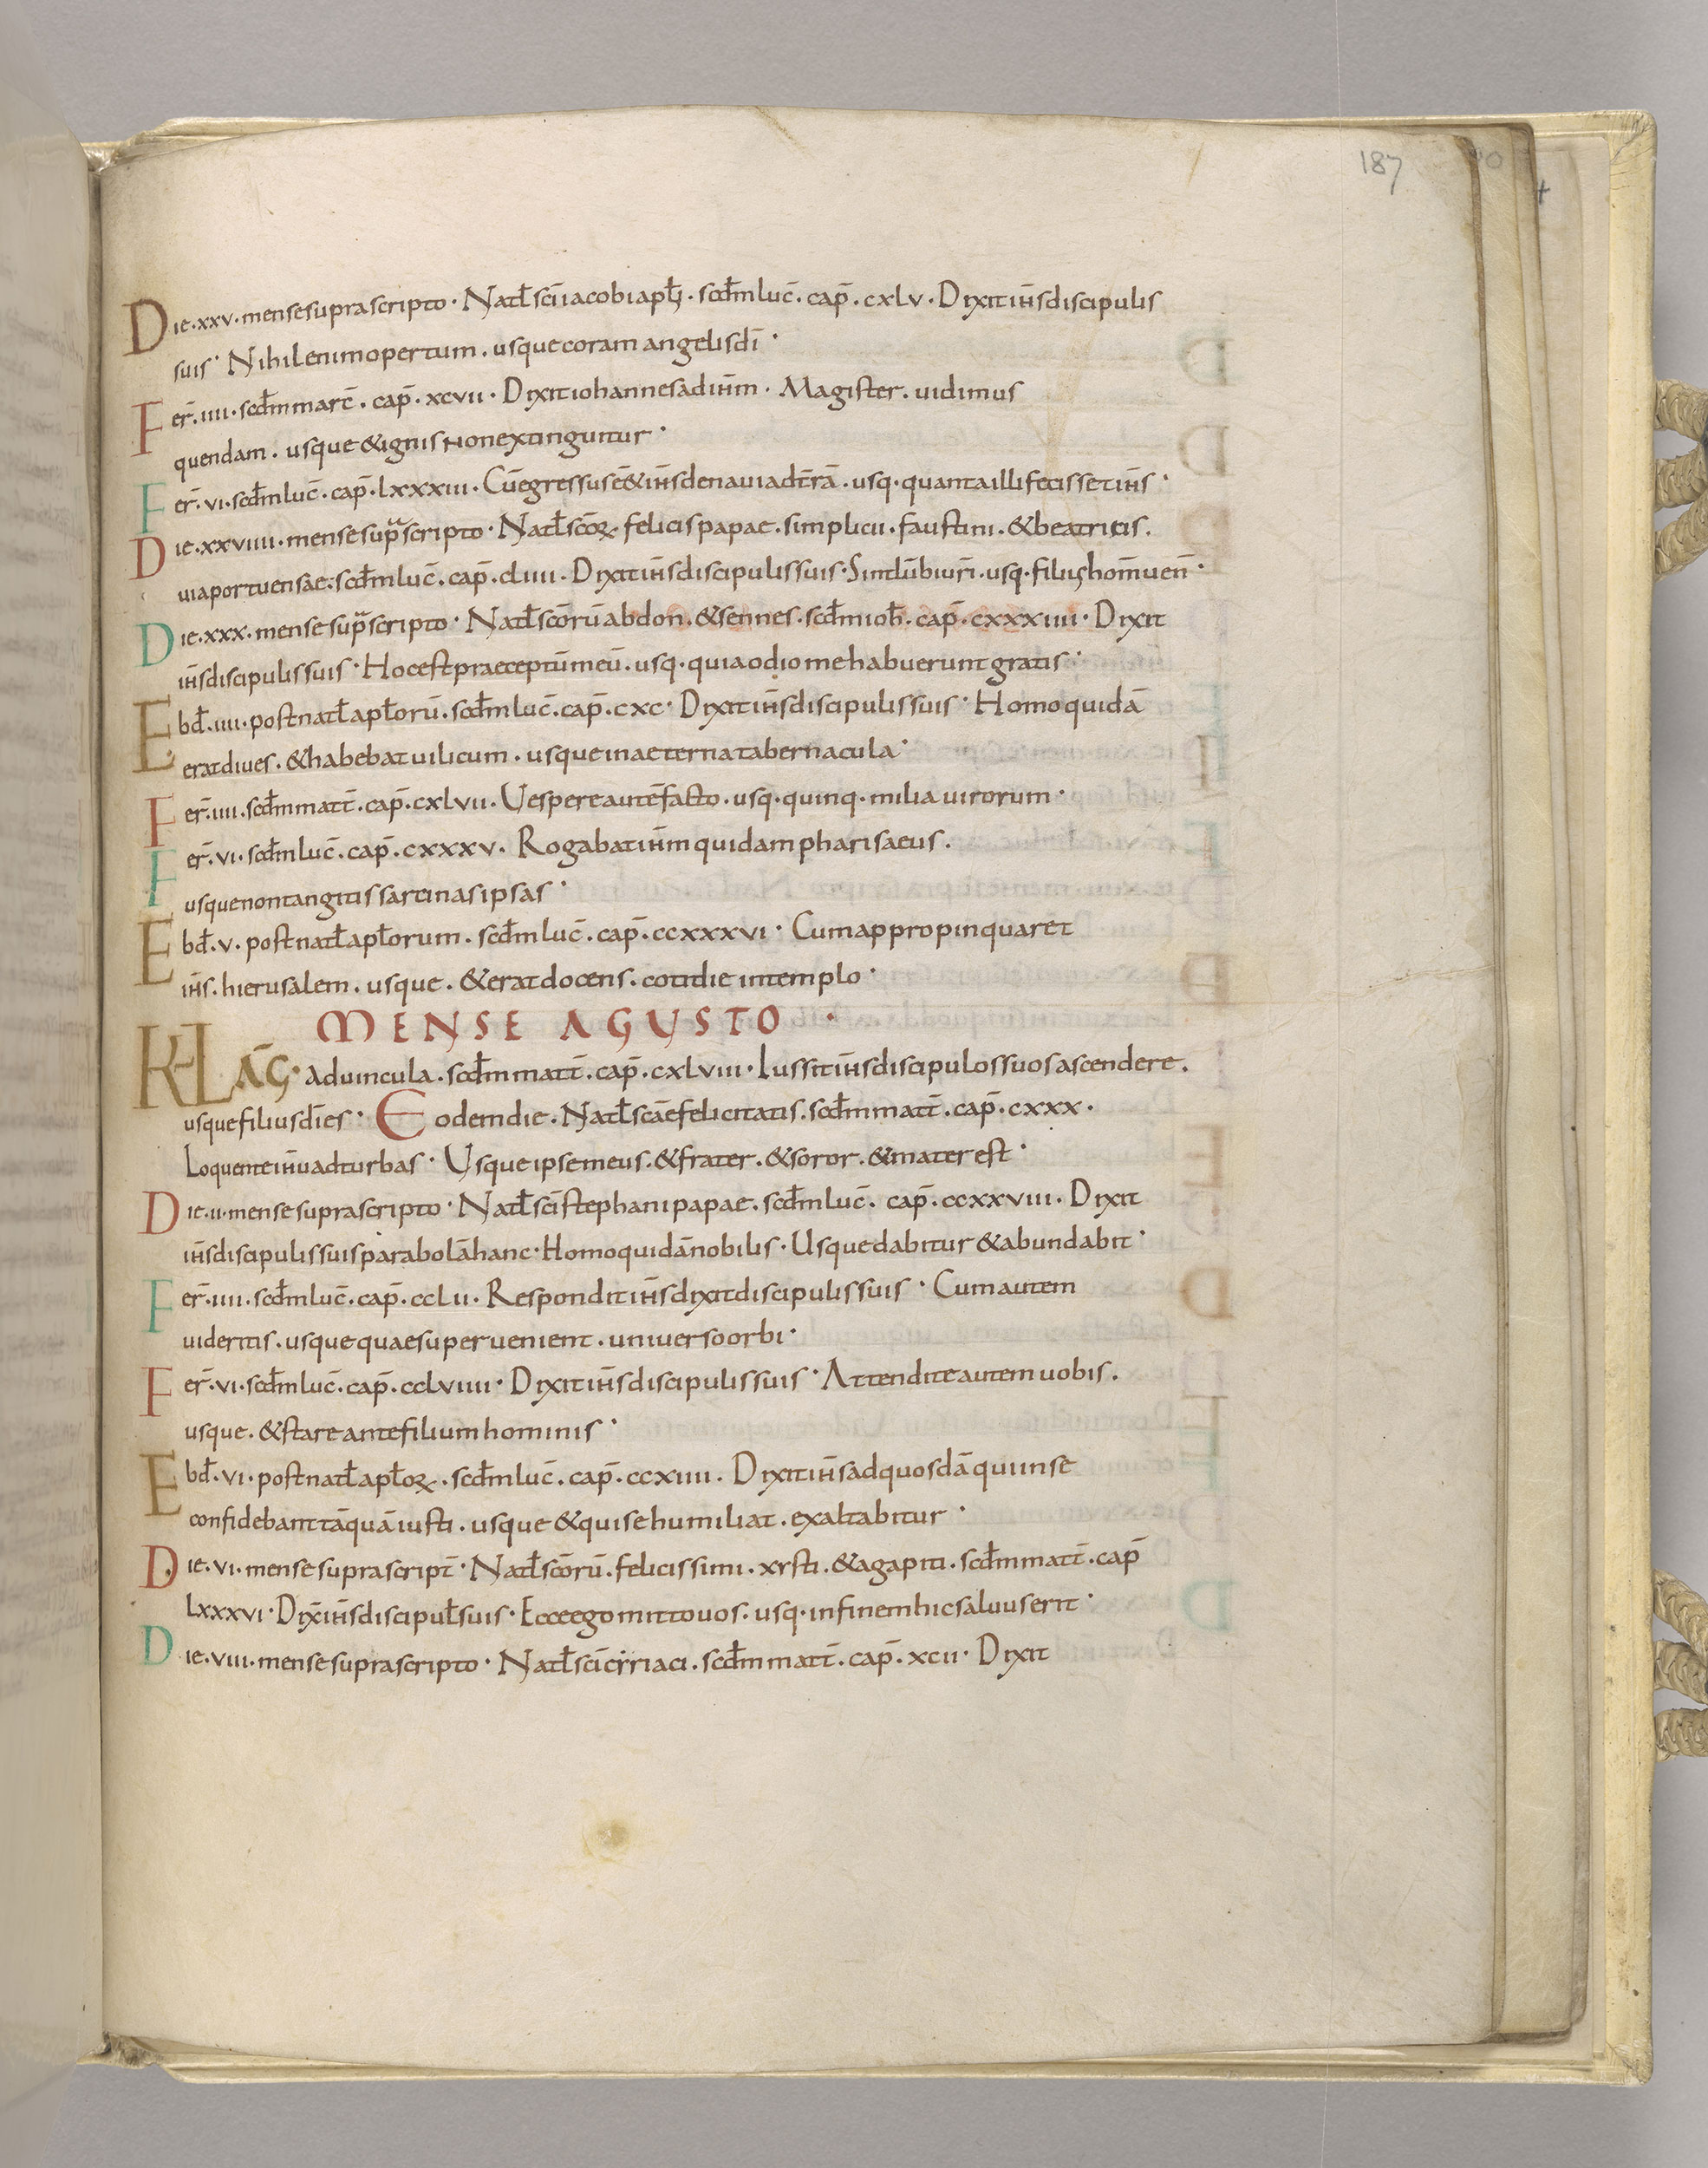 187
Die·xxv·mense suprascripto· Natł sc̄i iacobi apłi· scd̄m luc̄· cap̄· cxlv· Dixit ih̄s discipulis
suis· Nihil enim opertum. usque coram angelis dī·
Fer̄·iiii·scd̄m marc̄. cap̄. xcvii· Dixit iohannes ad ih̄m· Magister. uidimus
quendam. usque & ignis non extinguitur·
Fer̄·vi·scd̄m luc̄·cap̄·lxxxiii· Cū egressus eē & ih̄s de naui ad tr̄ā. usq· quanta illi fecisset ih̄s·
Die·xxviiii·mense sup̄scripto· Natł scōꝝ felicis papae. simplicii. faustini. & beatricis.
uia portuensae: scd̄m luc̄. cap̄. cliiii· Dixit ih̄s discipulis suis· Sint lūbi ur̄i. usq· filius hom̄ uen̄·
Die·xxx·mense sup̄scripto· Natł scōrū abdon. & sennes. scd̄m ioh̄. cap̄. cxxxiiii· Dixit
ih̄s discipulis suis· Hoc est praeceptū meū. usq· quia odio me habuerunt gratis·
Ebd̄·iiii· post natł apłorū. scd̄m luc̄. cap̄. cxc· Dixit ih̄s discipulis suis· Homo quidā
erat diues. & habebat uilicum. usque in aeterna tabernacula·
Fer̄·iiii·scd̄m matt̄. cap̄. cxlvii. Uespere autē facto. usq· quinq· milia uirorum·
Fer̄·vi·scd̄m luc̄. cap̄. cxxxv. Rogabat ih̄m quidam pharisaeus.
usque non tangitis sarcinas ipsas·
Ebd̄·v· post natł apłorum. scd̄m luc̄. cap̄. ccxxxvi· Cum appropinquaret
ih̄s. hierusalem. usque. & erat docens. cotidie in templo·
MENSE AGUSTO·
KL AḠ· Aduincula. scd̄m matt̄. cap̄. cxlviii· Iussit ih̄s discipulos suos ascendere.
usque filius dī es· Eodem die. Natł scāe felicitatis. scd̄m matt̄. cap̄. cxxx.
Loquente ih̄u ad turbas· Usque ipse meus. & frater. & soror. & mater est·
Die·ii·mense suprascripto· Natł sc̄i stephani papae. scd̄m luc̄. cap̄. ccxxviii. Dixit
ih̄s discipulis suis parabolā hanc· Homo quidā nobilis· Usque dabitur & abundabit·
Fer̄·iiii·scd̄m luc̄. cap̄. cclii. Respondit ih̄s dixit discipulis suis· Cum autem
uideritis. usque quae superuenient. uniuerso orbi·
Fer̄·vi·scd̄m luc̄. cap̄. cclviiii· Dixit ih̄s discipulis suis· Attendite autem uobis.
usque. & stare ante filium hominis·
Ebd̄·vi· post natł apłoꝝ. scd̄m luc̄. cap̄. ccxiiii. Dixit ih̄s ad quosdā qui in se
confidebant tāquā iusti. usque & qui se humiliat. exaltabitur·
Die·vi·mense suprascript̄· Natł scōrū. felicissimi. xrsti. & agapiti. scd̄m matt̄. cap̄
lxxxvi· Dix̄ ih̄s discipuł suis· Ecce ego mitto uos. usq· in finem hic saluus erit·
Die·viii·mense suprascripto· Natł sc̄i cyriaci. scd̄m matt̄. cap̄. xcii· Dixit